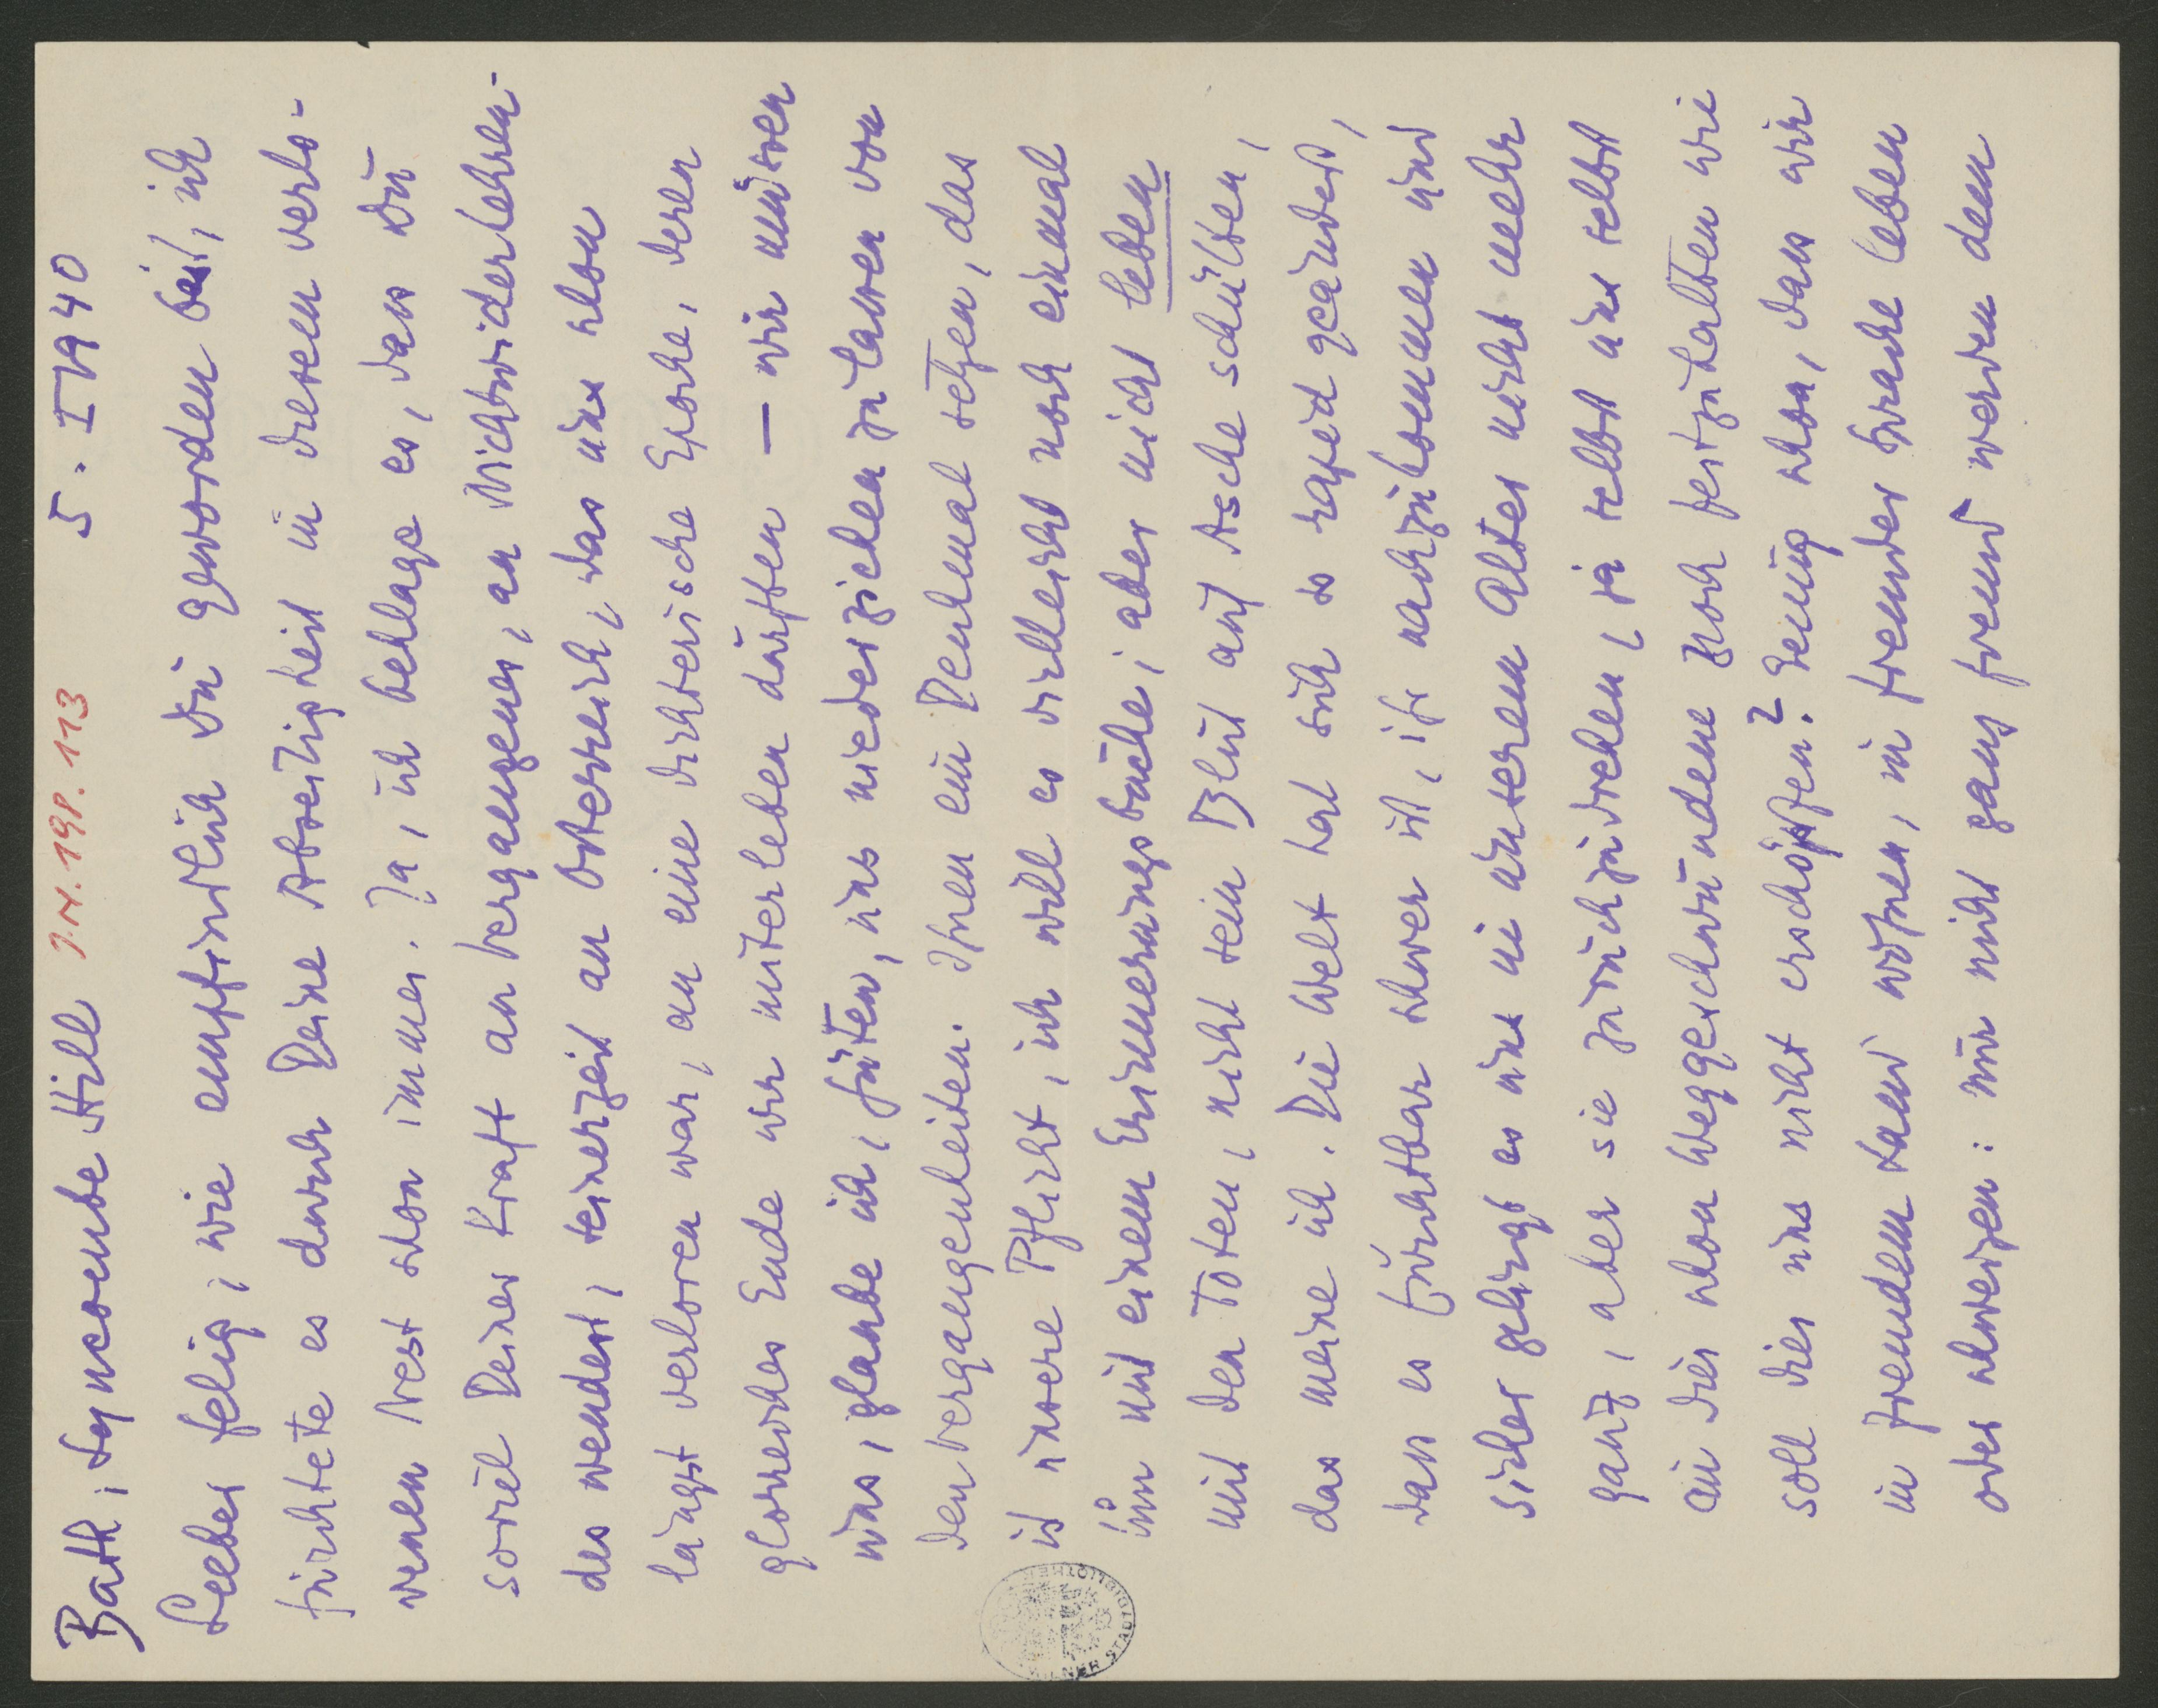 Bath, Lyncombe Hill J.N. 198.113 5. I 1940
Lieber Felix, wie empfindlich Du geworden bist, ich
fürchtete es durch Deine Abseitigkeit in diesem verlo-
renen Nest schon immer. Ja, ich beklage es, dass Du
soviel Deiner Kraft an Vergangenes, an Nichtwiderkehren-
des wendest, seinerzeit an Österreich, das uns schon
längst verloren war, an eine dichterische Epoche, deren
glorreiches Ende wir miterleben durften — wir müssen
uns, glaube ich, hüten, uns niederziehen zu lassen von
den Vergangenheiten. Ihnen ein Denkmal setzen, das
ist unsere Pflicht, ich will es vielleicht noch einmal
tun mit einem Erinnerungsbuche, aber nicht leben
mit den Toten, nicht sein Blut auf Asche schütten,
das meine ich. Die Welt hat sich so rapid geändert,
dass es furchtbar schwer ist, ihr nachzukommen und
sicher gelingt es uns in unserem Alter nicht mehr
ganz, aber sie zurückzudrehen, ja selbst uns selbst
an dies schon Weggeschwundene noch festzuhalten wie
soll dies uns nicht erschöpfen? Genug schon, dass wir
in fremdem Land wohnen, in fremder Sprache leben
oder schweigen: nur nicht ganz fremd werden dem